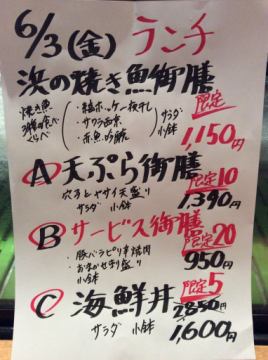 6/3(金) ランチ
浜の焼き魚御膳
焼き魚
3種の食べ
くらべ
・縞ホッケ一夜干し
・サワラ西京
・赤魚吟醸
サラダ
小鉢
限定
1,150円
A 天ぷら御膳
穴子とヤサイ天盛り
サラダ 小鉢
限定10
1,390円
B サービス御膳
限定20
・豚バラピリ辛焼肉
・おまかせ盛り
小鉢
950円
C 海鮮丼
限定5
2850円
サラダ 小鉢
1,600円